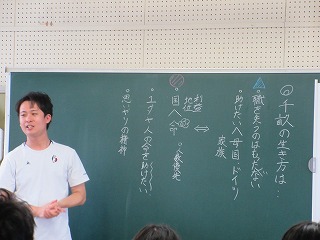 ◎千畝の生き方は…
・職を失うのはもったいない
・助けたい人 母国、ドイツ
家族
利益
地位
・国 ⇔
・人数優先
・ユダヤ人の命を助けたい
・思いやりの精神